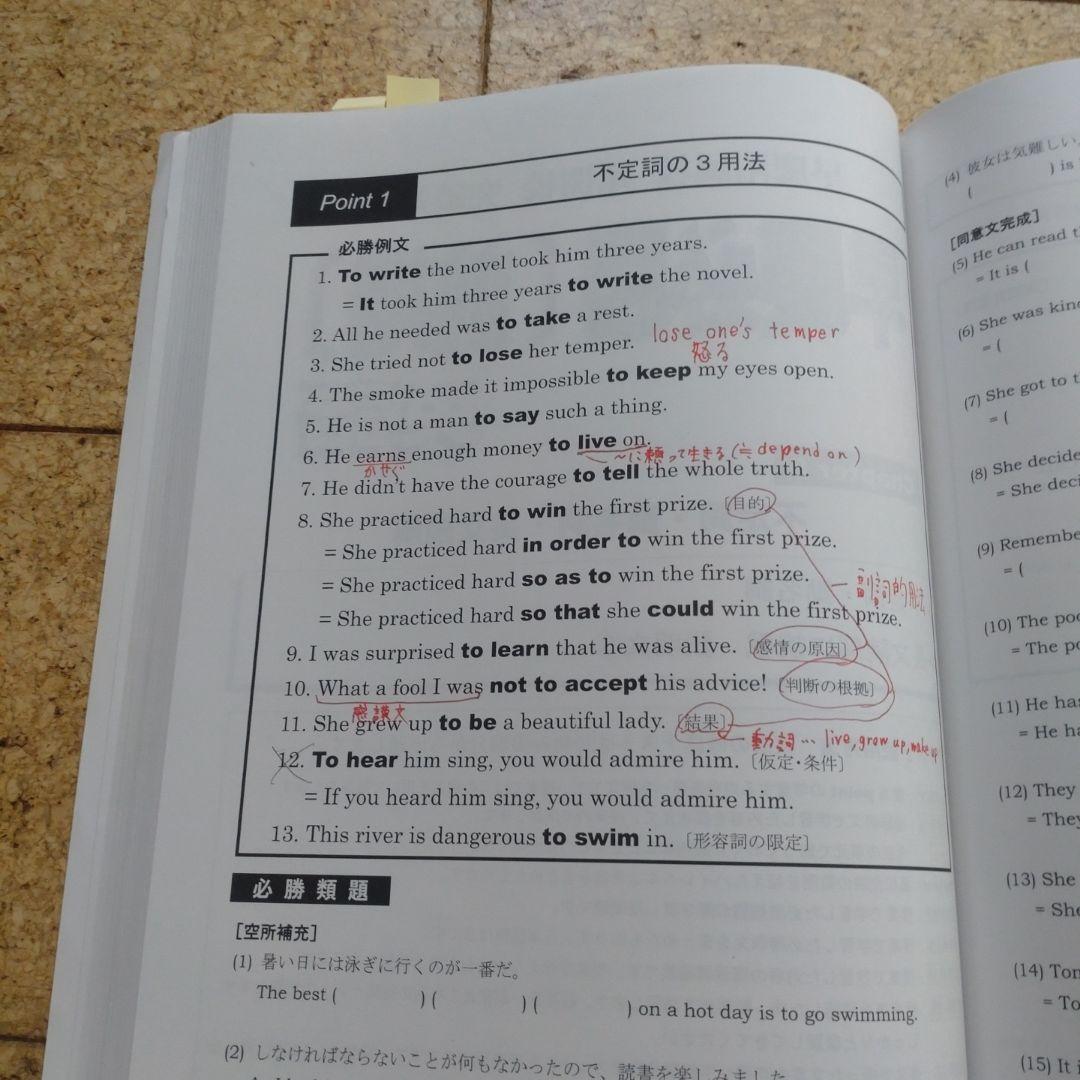 不定詞の3用法
Point 1
必勝例文
1. To write the novel took him three years.
= It took him three years to write the novel.
2. All he needed was to take a rest.
3. She tried not to lose her temper. lose one's temper
怒る
4. The smoke made it impossible to keep my eyes open.
5. He is not a man to say such a thing.
6. He earns enough money to live on.
かせぐ
〜に頼って生きる(≒depend on)
7. He didn't have the courage to tell the whole truth.
8. She practiced hard to win the first prize. [目的]
= She practiced hard in order to win the first prize.
= She practiced hard so as to win the first prize.
副詞的用法
= She practiced hard so that she could win the first prize.
9. I was surprised to learn that he was alive. [感情の原因]
10. What a fool I was not to accept his advice! [判断の根拠]
感謨文
11. She grew up to be a beautiful lady. [結果]
動詞… live, grow up, make up
12. To hear him sing, you would admire him. [仮定・条件]
= If you heard him sing, you would admire him.
13. This river is dangerous to swim in. [形容詞の限定]
必勝類題
[空所補充]
(1) 暑い日には泳ぎに行くのが一番だ。
The best ( ) ( ) ( ) on a hot day is to go swimming.
(2) しなければならないことが何もなかったので、読書を楽しみました
(4) 彼女は気難しい
( ) is
[同意文完成]
(5) He can read
= It is (
(6) She was kin
= (
(7) She got to
= (
(8) She decide
= She deci
(9) Remembe
= (
(10) The poo
= The po
(11) He has
= He ha
(12) They
= They
(13) She
= She
(14) Tom
= To
(15) It